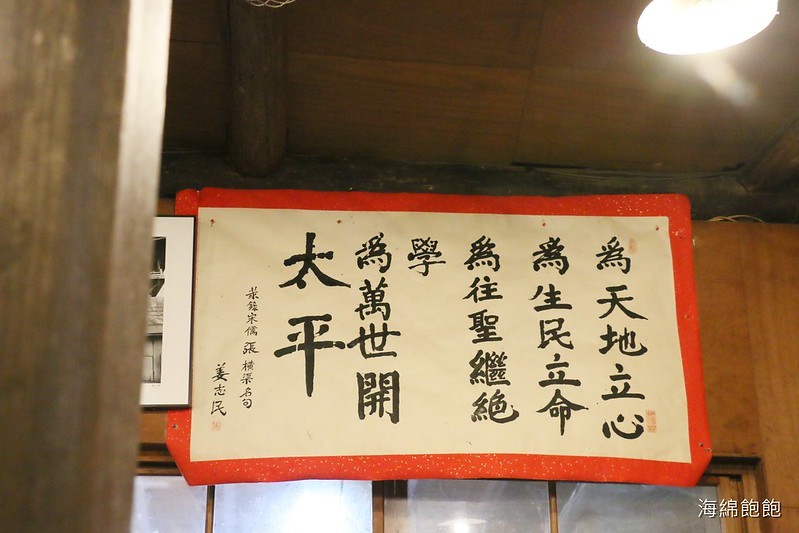 為天地立心
為生民立命
為往聖繼絕
學
為萬世開
太平
錄宋儒張橫渠名句
姜志民
海綿飽飽